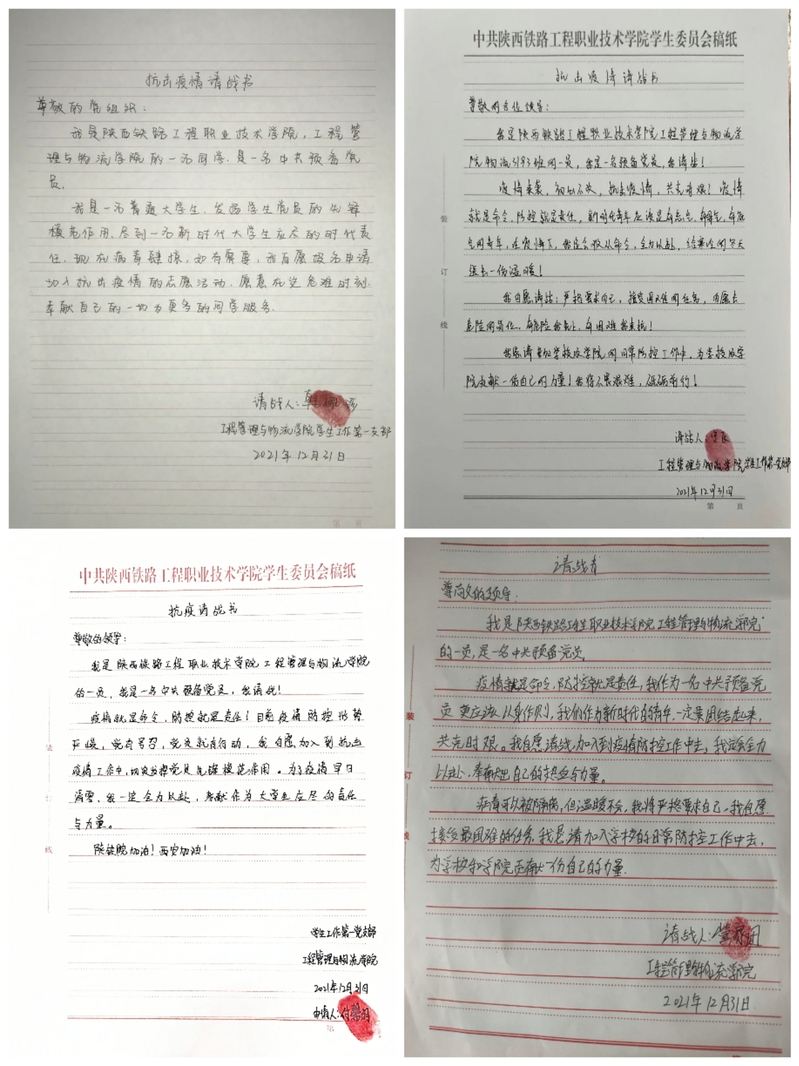 抗击疫情请战书
尊敬的党组织:
我是陕西铁路工程职业技术学院,工程管
理与物流学院的一名同学.是一名中共预备党
员.
我是一名普通大学生,发西学生党员的先锋
模范作用.尽到一名新时代大学生应尽的时代责
任.现在病毒肆掠,如有需要,我自愿报名申请
加入抗击疫情的志愿活动.愿意在这危难时刻.
奉献自己的一切为更多的同学服务.
请战人:韩
工程管理与物流学院学生工作第一支部
2021年12月31日
第 页
中共陕西铁路工程职业技术学院学生委员会稿纸
抗击疫情请战书
尊敬的各位领导:
我是陕西铁路工程职业技术学院工程管理与物流学
院物流3193班的一员,我是一名预备党员,我请战!
疫情来袭,初心不改,抗击疫情,共克难!疫情
就是命令,防控就是责任,新时代青年应该是有志气、有骨气、有底
气的青年,在疫情下,我应服从命令,全力以赴,给寒冷的冬天
送去一份温暖!
我自愿请战:严格要求自己,接受困难的任务,
危险的岗位,有危险我来上,有困难我来扛!
我恳请参加学校及学院的日常防控工作中,为学校及学
院贡献一份自己的力量!我将不畏艰难,砥砺前行!
装
订
线
请战人:
工程管理与物流学院学生工作第一支部
2021年12月31日
第 页
中共陕西铁路工程职业技术学院学生委员会稿纸
抗疫请战书
尊敬的领导:
我是陕西铁路工程职业技术学院工程管理与物流学院
的一员,我是一名中共预备党员,我请战!
疫情就是命令,防控就是责任!目前疫情防控形势
严峻,党有号召,党员就有行动,我自愿加入到抗击
疫情工作中,切实发挥党员先锋模范作用。为了疫情早日
清零,我一定全力以赴,奉献作为大学生应尽的责任
与力量。
陕铁院加油!西安加油!
装
订
线
学生工作第一党支部
工程管理与物流学院
2021年12月31日
申请人:付
第
请战书
尊敬的领导:
我是陕西铁路工程职业技术学院工程管理与物流学院
的一员,是一名中共预备党员
疫情就是命令,防控就是责任,我作为一名中共预备党
员 更应该以身作则,我们作为新时代的青年,一定要团结起来,
共克时艰。我自愿请战加入到疫情防控工作中去,我定会全力
以赴、奉献出自己的热血与力量。
病毒可以被隔离,但温暖不会,我将严格要求自己,我自愿
接受最困难的任务,我恳请加入学校的日常防控工作中去,
为学校和学院贡献一份自己的力量.
装
订
线
请战人:
工程管理与物流学院
2021年12月31日